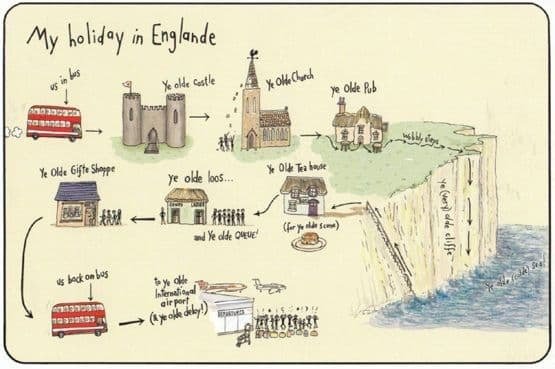 My holiday in Englande
us in bus
Ye olde Castle
Ye Olde Church
Ye Olde Pub
wobbly steps
ye (very) olde cliffs
Ye olde (colde) sea
Ye Olde Tea house
(for ye olde scone)
ye olde loos...
GENTS LADIES
and Ye olde QUEUE!
Ye Olde Gifte Shoppe
us back on bus
to ye Olde
International
airport
(& ye olde delay!)
DEPARTURES